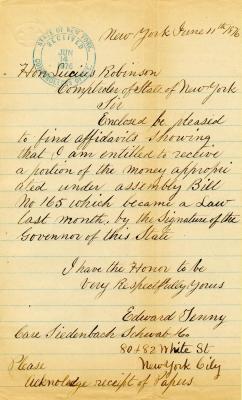 New York June 11th 1876
STATE OF NEW YORK
RECEIVED
JUN
14
1876
Hon Lucius Robinson
Comptroler of State of New York
Sir
Enclosed be pleased
to find affidavits showing
that I am entitled to receive
a portion of the money appropri
ated under assembly Bill
No 165 which became a Law
last month, by the Signature of the
Govennor of this State
I have the Honor to be
Very Respectfully Yours
Edward Tenny
Care Siedenbach Schwab & Co
80 & 82 White St
Please New York City
Acknoledge receipt of Papers